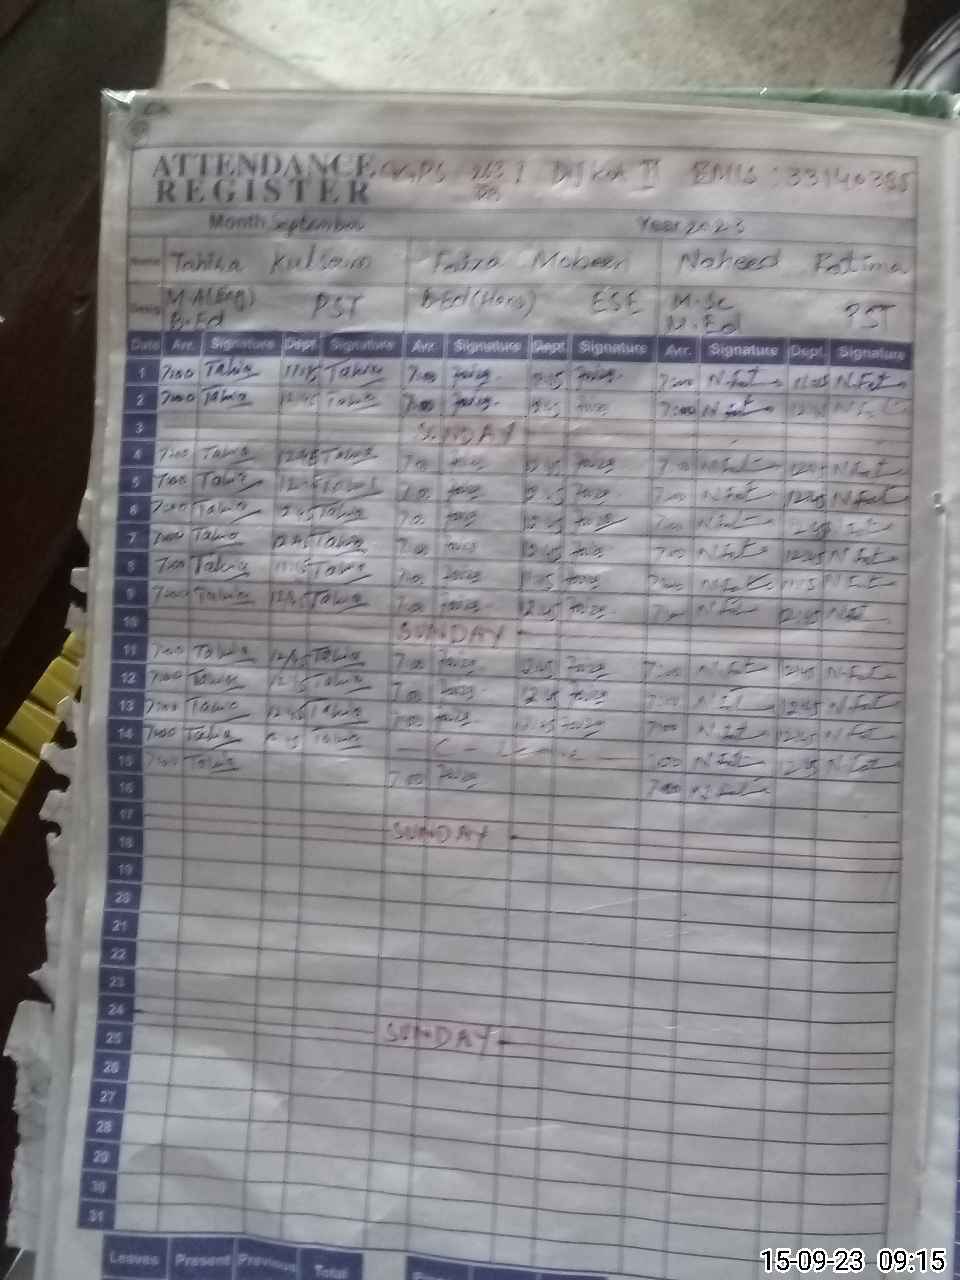 ATTENDANCE REGISTER GGPS 263 RB I DIJKOT II EMIS : 33140385
Month September Year 2023
Name Tahira Kulsoom Faiza Mobeen Naheed Fatima
M.A(Eng) B.Ed PST B.Ed(Hons) ESE M.Sc M.Ed PST
Date Arr. Signature Dept. Signature Arr. Signature Dept. Signature Arr. Signature Dept. Signature
1 7:00 Tahira 11:15 Tahira 7:00 Faiza Faiza 7:00 N.Fat N.Fat
2 7:00 Tahira 12:45 Tahira 7:00 Faiza 12:45 Faiza 7:00 N.Fat 12:45 N.Fat
3 SUNDAY
4 7:00 Tahira 12:45 Tahira 7:00 Faiza 12:45 Faiza 7:00 N.Fat 12:45 N.Fat
5 7:00 Tahira 12:45 Tahira 7:00 Faiza 12:45 Faiza 7:00 N.Fat 12:45 N.Fat
6 7:00 Tahira 12:45 Tahira 7:00 Faiza 12:45 Faiza 7:00 N.Fat 12:45 N.Fat
7 7:00 Tahira 12:45 Tahira 7:00 Faiza 12:45 Faiza 7:00 N.Fat 12:45 N.Fat
8 7:00 Tahira 11:15 Tahira 7:00 Faiza 11:15 Faiza 7:00 N.Fat 11:15 N.Fat
9 7:00 Tahira 12:45 Tahira 7:00 Faiza 12:45 Faiza 7:00 N.Fat 12:45 N.Fat
10 SUNDAY
11 7:00 Tahira 12:45 Tahira 7:00 Faiza 12:45 Faiza 7:00 N.Fat 12:45 N.Fat
12 7:00 Tahira 12:45 Tahira 7:00 Faiza 12:45 Faiza 7:00 N.Fat 12:45 N.Fat
13 7:00 Tahira 12:45 Tahira 7:00 Faiza 12:45 Faiza 7:00 N.Fat 12:45 N.Fat
14 7:00 Tahira 12:45 Tahira C - Leave 7:00 N.Fat 12:45 N.Fat
15 7:00 Tahira 7:00 Faiza 7:00 N.Fat
16
17 SUNDAY
18
19
20
21
22
23
24 SUNDAY
25
26
27
28
29
30
31
Leaves Present Previous Total
15-09-23 09:15